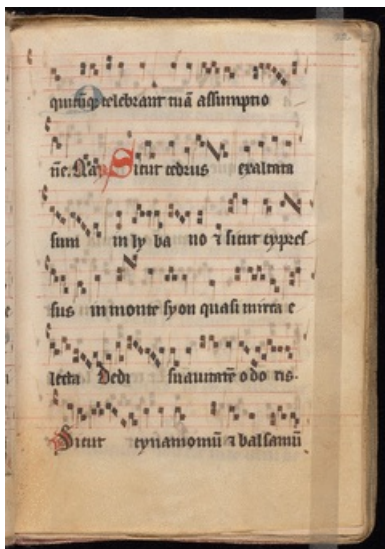 quicūq; celebrant tuā assumptio
nē. Sicut cedrus exaltata
sum in ly ba no ⁊ sicut cypres
sus in monte syon quasi mirra e
lecta Dedi suauitatē odo ris.
Sicut cynamomū ⁊ balsamū